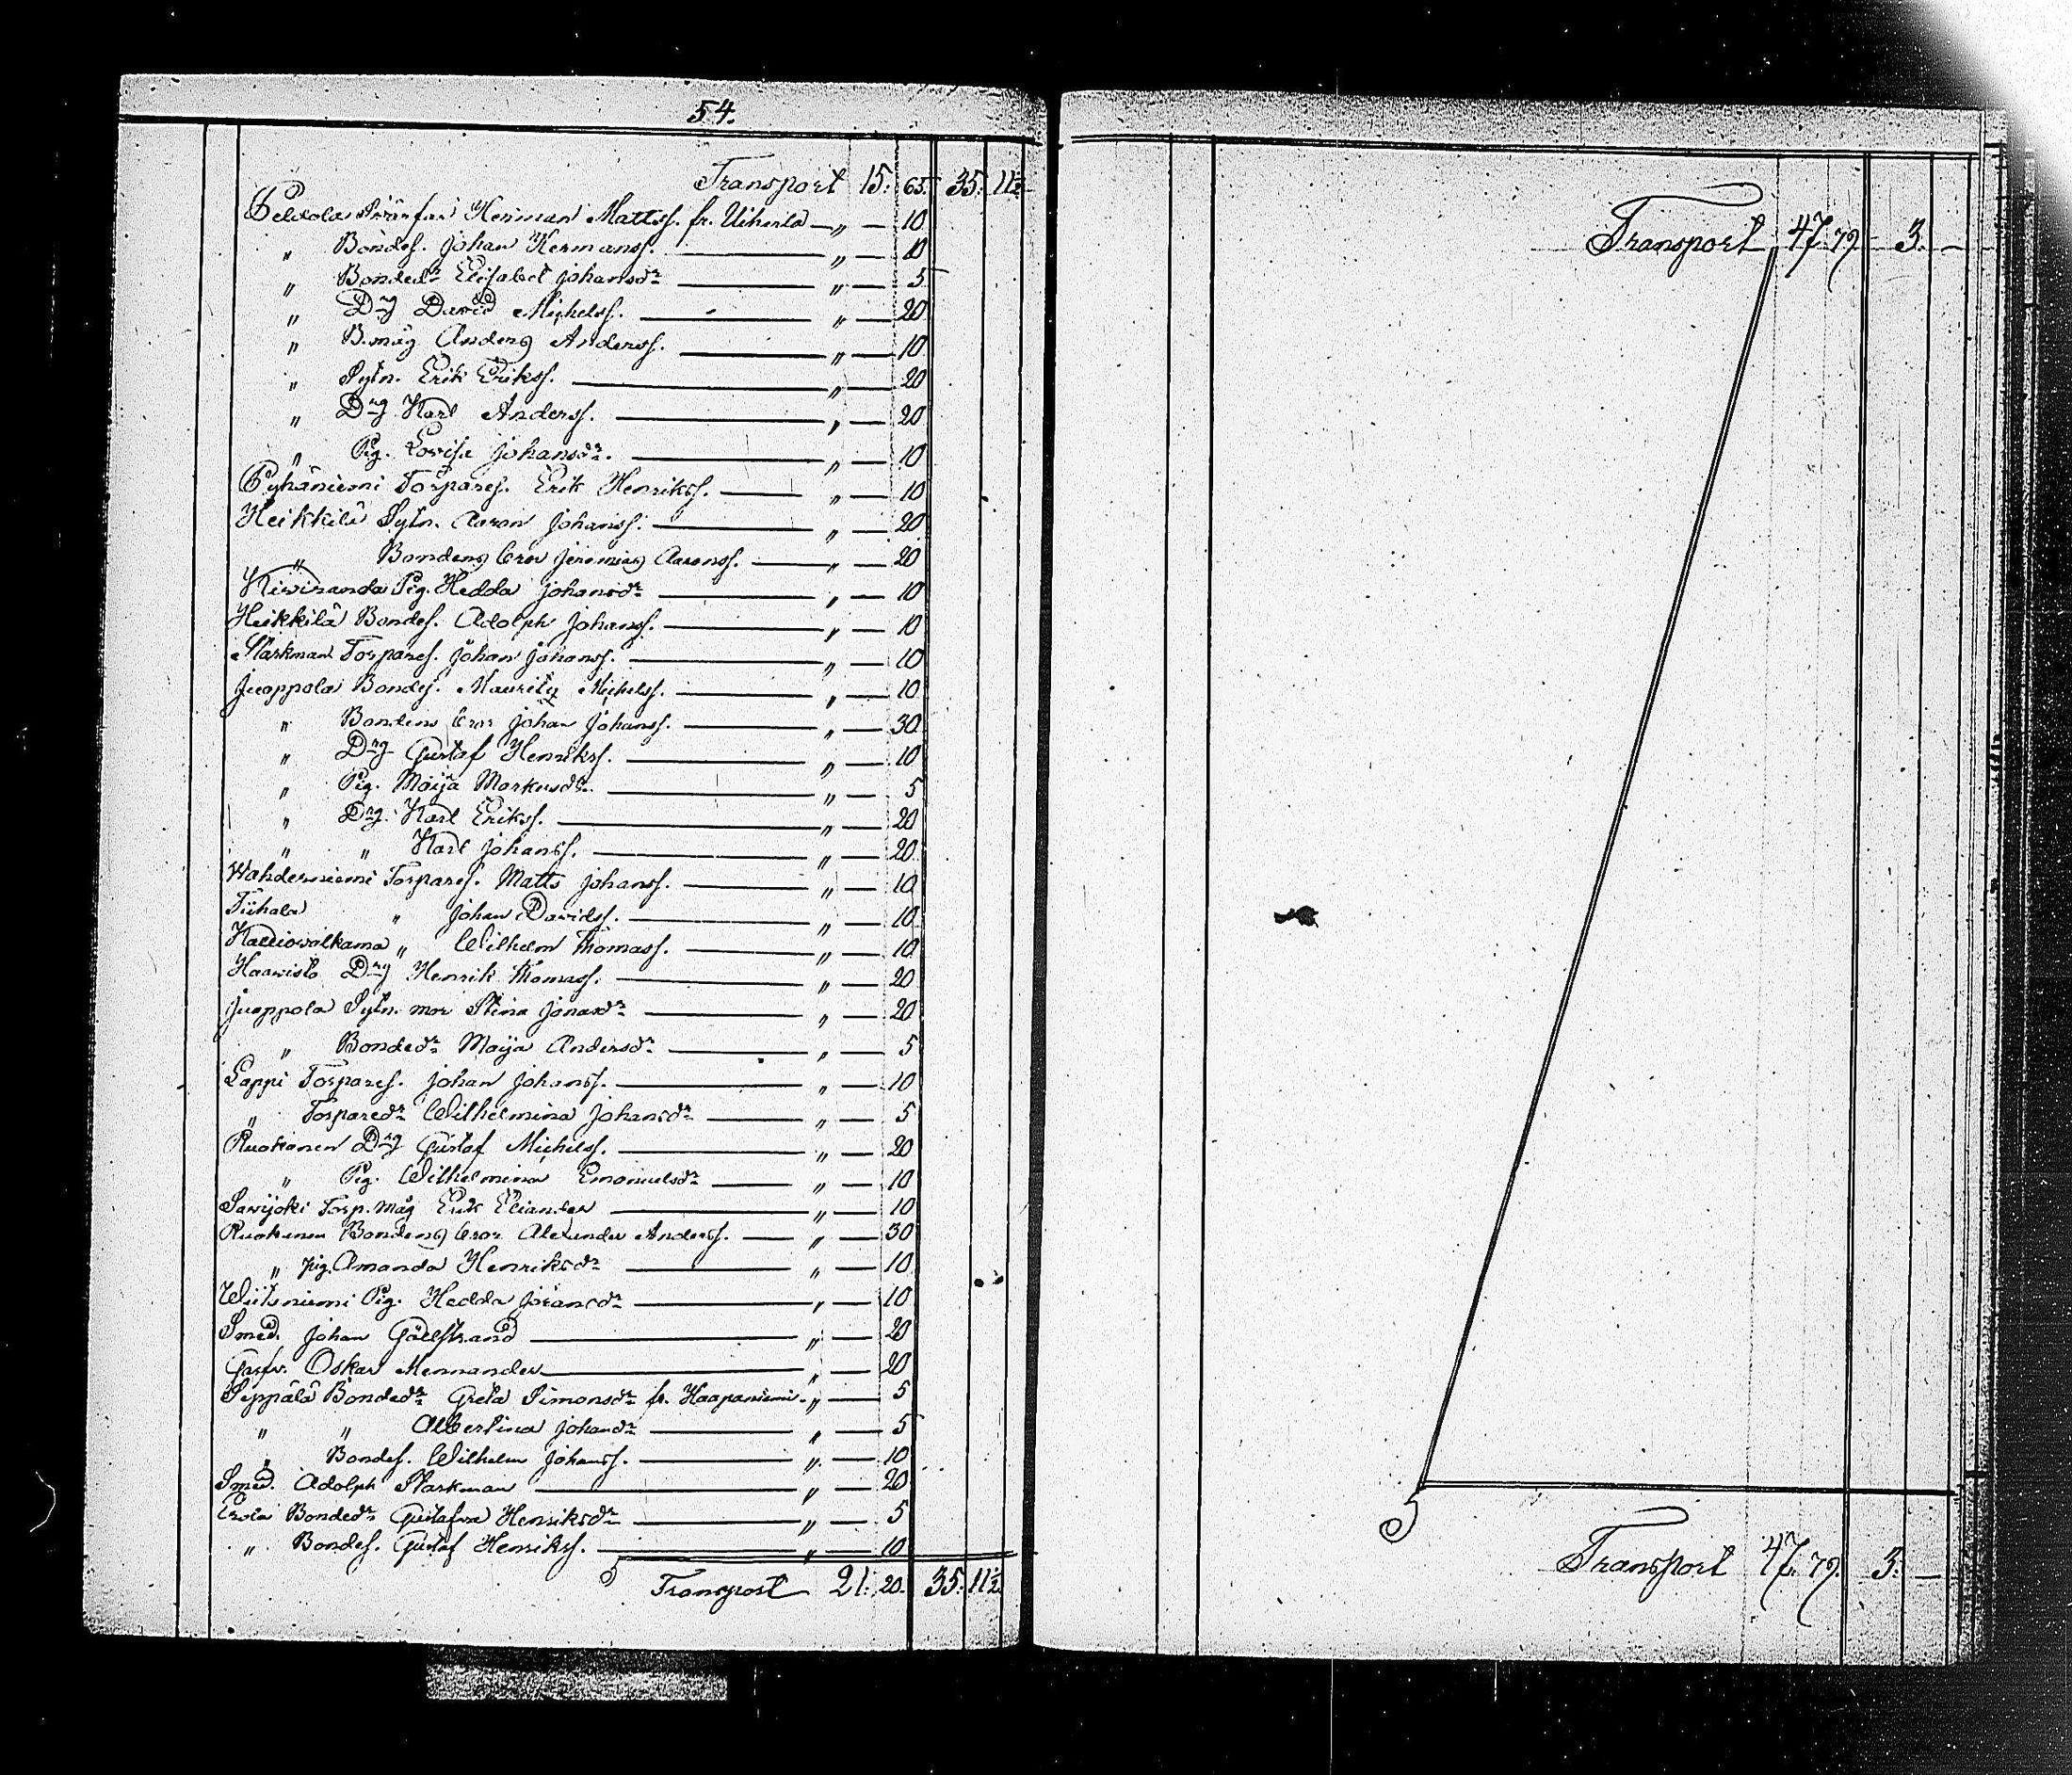 54.
Transport 15. 65. 35. 11½
Peldola Herman Mattss. fr. Uiherla — „ — 10
„ Bondes. Johan Hermanss. — „ — 10
„ Bondedr Elisabet Johansdr — „ — 5
„ Drg David Michelss. — „ — 20
„ B. måg Anders Anderss. — „ — 10
„ Sytn. Erik Erikss. — „ — 20
„ Drg Karl Anderss. — „ — 20
„ Pig. Lovisa Johansdr. — „ — 10
Pyhäniemi Torpares. Erik Henrikss. — „ — 10
Heikkilä Sytn. Aaron Johanss. — „ — 20
„ Bondens bror Jeremias Aaronss. — „ — 20
Kiviranda Pig. Hedda Johansdr — „ — 10
Heikkilä Bondes. Adolph Johanss. — „ — 10
Starkman Torpares. Johan Johanss. — „ — 10
Juoppola Bondes. Mauritz Michelss. — „ — 10
„ Bondens bror Johan Johanss. — „ — 30
„ Drg Gustaf Henrikss. — „ — 10
„ Pig. Maija Markusdr — „ — 5
„ Drg. Karl Erikss. — „ — 20
„ „ Karl Johanss. — „ — 20
Wahderniemi Torpares. Matts Johanss. — „ — 10
Tiihala „ Johan Davidss. — „ — 10
Kalliovalkama „ Wilhelm Thomass. — „ — 10
Haavisto Drg Henrik Thomass. — „ — 20
Juoppola Sytn. mor Stina Jonasdr — „ — 20
„ Bondedr Maija Andersdr — „ — 5
Lappi Torpares. Johan Johanss. — „ — 10
„ Torparedr Wilhelmina Johansdr — „ — 5
Ruokonen Drg Gustaf Michelss. — „ — 20
„ Pig. Wilhelmina Emanuelsdr — „ — 10
Savijoki Torp. måg Erik Eliander — „ — 10
Ruokonen Bondens bror Alexander Anderss. — „ — 30
„ pig. Amanda Henriksdr — „ — 10
Wiitaniemi Pig. Hedda Göransdr — „ — 10
Smed. Johan Gällstrand — „ — 20
Garfv. Oskar Mennander — „ — 20
Seppälä Bondedr Greta Simonsdr fr. Haapaniemi — „ — 5
„ „ Albertina Johansdr — „ — 5
„ Bondes. Wilhelm Johanss. — „ — 10
Smed. Adolph Starkman — „ — 20
Erola Bondedr Gustafva Henriksdr — „ — 5
„ Bondes. Gustaf Henrikss. — „ — 10
Transport 21. 20. 35. 11½
Transport 47. 79. 3. —
Transport 47. 79. 3. —